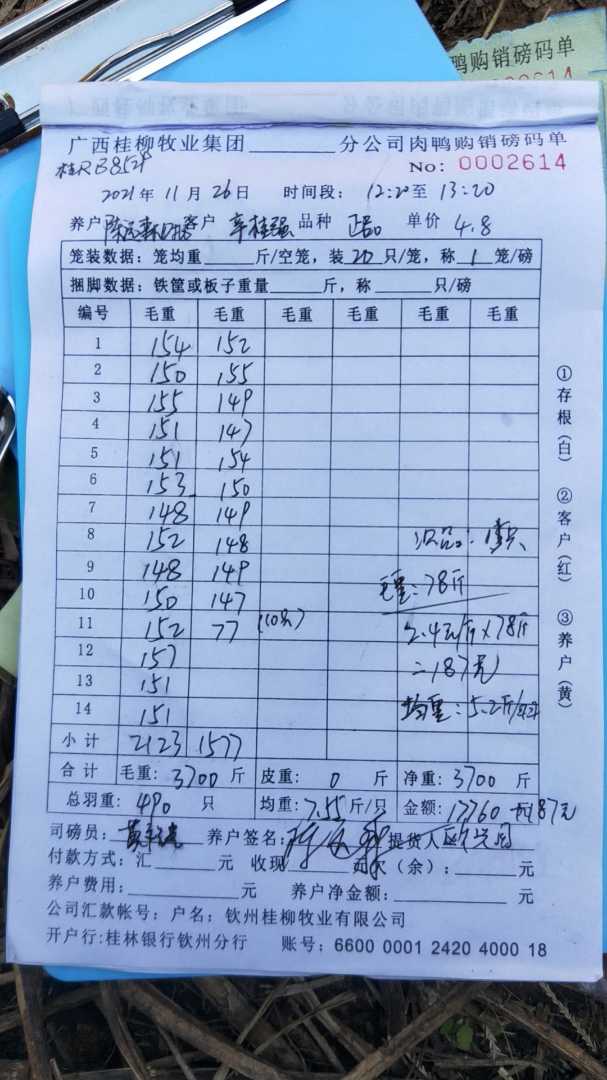 鸭购销磅码单
0002614
广西桂柳牧业集团______分公司肉鸭购销磅码单
桂R B852
No: 0002614
2021年 11月 26日 时间段: 12:20至 13:20
养户 客户 辛桂强 品种 正品 单价 4.8
笼装数据: 笼均重______斤/空笼, 装 20 只/笼, 称 1 笼/磅
捆脚数据: 铁筐或板子重量______斤, 称______只/磅
编号 毛重 毛重 毛重 毛重 毛重 毛重
1 154 152
2 150 155
3 155 149
4 151 147
5 151 154
6 153 150
7 148 149
8 152 148 次品: 只
9 148 149 毛重: 78斤
10 150 147
11 152 77 (10只) 2.4元/斤×78斤
12 157 =187元
13 151
14 151 均重: 5.2斤/只
小计 2123 1577
合计 毛重: 3700 斤 皮重: 0 斤 净重: 3700 斤
总羽重: 490 只 均重: 7.55 斤/只 金额: 17760 +187元
司磅员: 养户签名: 提货人
付款方式: 汇______元 收现 元欠(余): ______元
养户费用: ______元 养户净金额: ______元
公司汇款帐号: 户名: 钦州桂柳牧业有限公司
开户行:桂林银行钦州分行 账号: 6600 0001 2420 4000 18
①存根(白) ②客户(红) ③养户(黄)